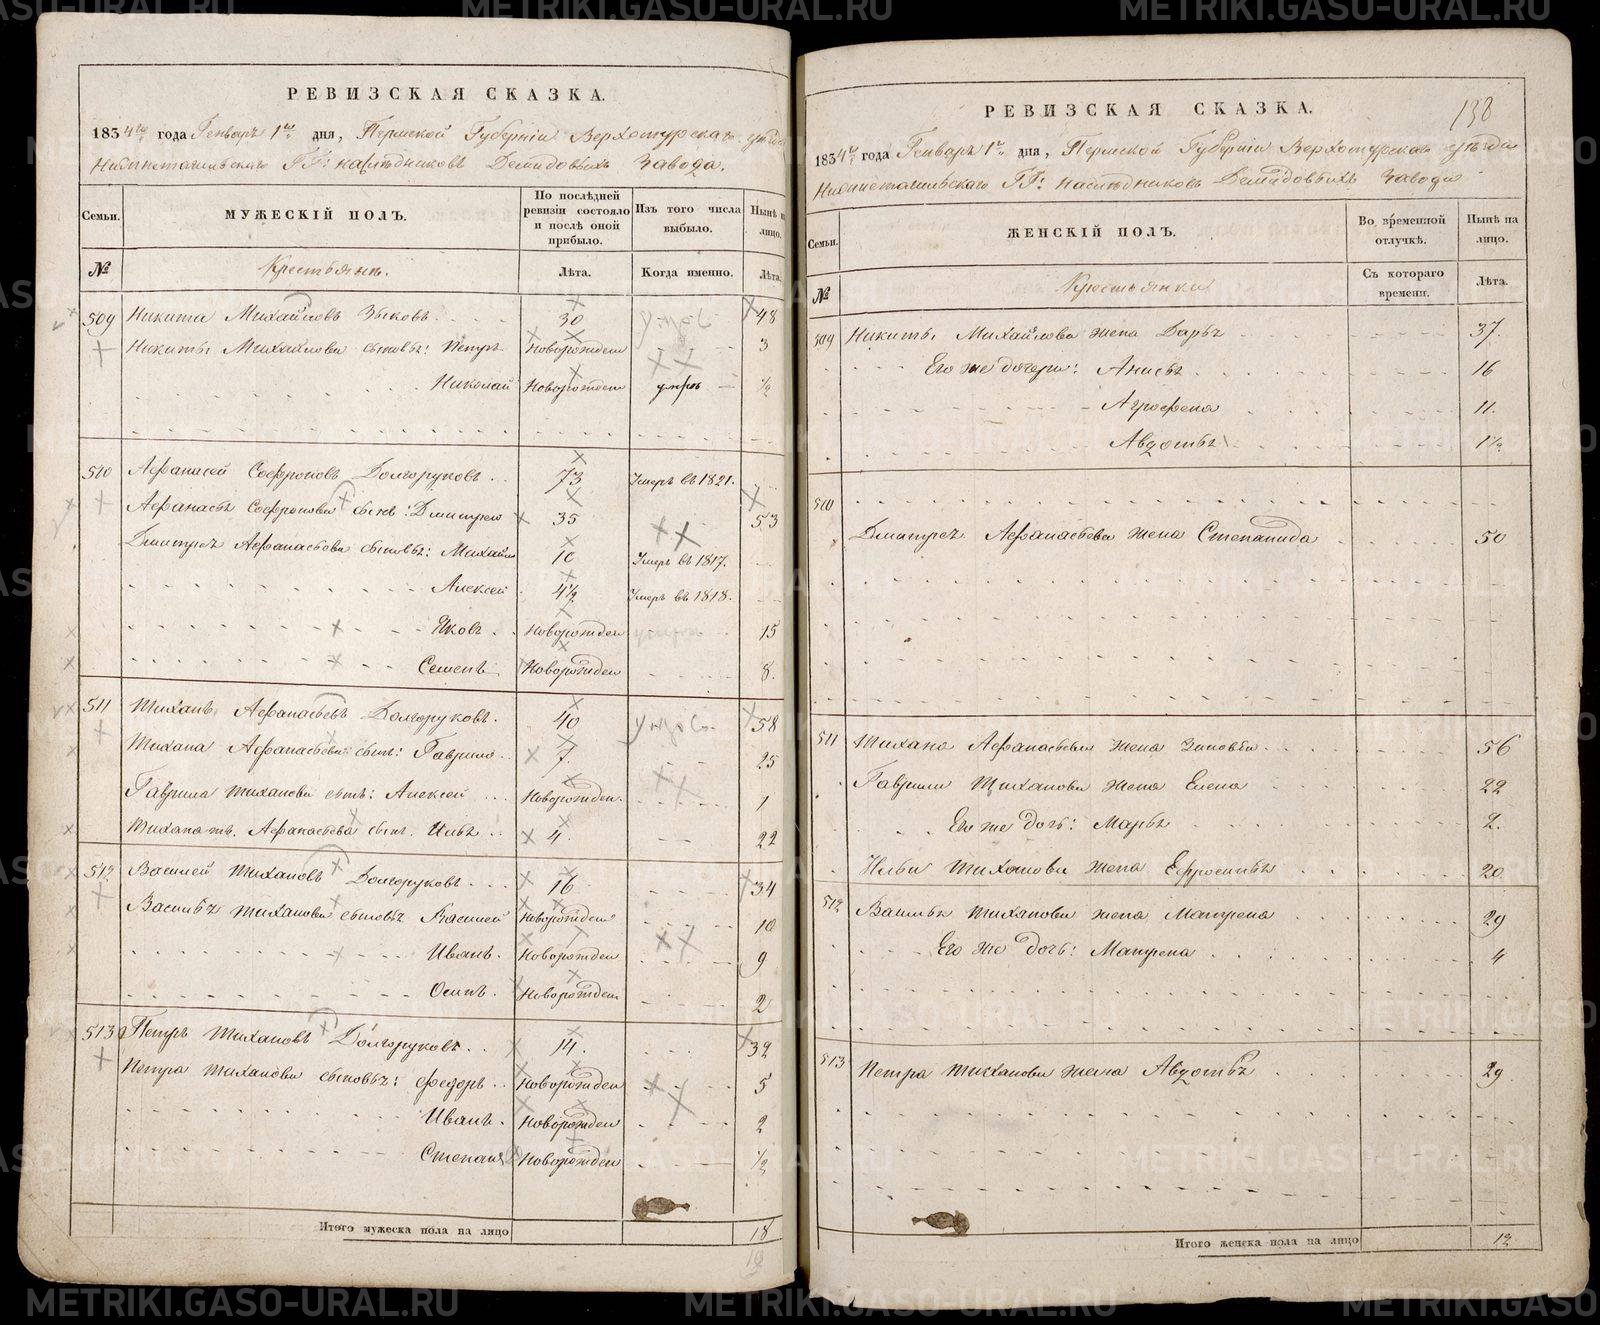 РЕВИЗСКАЯ СКАЗКА.
1834го года Генваря 1го дня, Пермской Губернiи Верхотурскаго уѣзда
Нижнетагильскаго ГГ: наслѣдниковъ Демидовыхъ Завода.
Семьи.
МУЖЕСКІЙ ПОЛЪ.
По послѣдней ревизіи состояло и послѣ оной прибыло.
Изъ того числа выбыло.
Нынѣ на лицо.
№
Крестьянъ.
Лѣта.
Когда именно.
Лѣта.
509 Никита Михайловъ Зыковъ. 30 умре 48
Никиты Михайлова сыновья: Петръ Новорожден 3
Николай Новорожден умръ ½
510 Афанасей Софроновъ Долгоруковъ 73 Умеръ въ 1821.
Афанасья Софронова сынъ: Дмитрей 35 53
Дмитрея Афанасьева сыновья: Михайло 10 Умеръ въ 1817.
Алексей 4½ Умеръ въ 1818.
Яковъ Новорожден 15
Семенъ Новорожден 8.
511 Тиханъ Афанасьевъ Долгоруковъ. 40 58
Тихана Афанасьева сынъ: Гаврило 7. 25
Гаврила Тиханова сынъ: Алексей Новорожден. 1
Тихана-жъ Афанасьева сынъ Илья 4. 22
512 Василей Тихановъ Долгоруковъ 16 34
Василья Тиханова сыновья Василей Новорожден 10
Иванъ. Новорожден 9
Осипъ. Новорожден 2
513 Петръ Тихановъ Долгоруковъ 14. 32
Петра Тиханова сыновья: Федоръ Новорожден 5
Иванъ. Новорожден 2
Степанъ Новорожден ½
Итого мужеска пола на лицо 18
РЕВИЗСКАЯ СКАЗКА.
138
1834го года Генваря 1го дня, Пермской Губерніи Верхотурскаго уѣзда
Нижнетагильскаго ГГ: наслѣдниковъ Демидовыхъ Завода
Семьи.
ЖЕНСКІЙ ПОЛЪ.
Во временной отлучкѣ.
Нынѣ на лицо.
№
Крестьянки
Съ котораго времени.
Лѣта.
509 Никиты Михайлова жена Дарья 37.
Его же дочери: Анисья 16
Агрофена 11.
Авдотья 1½
510
Дмитрея Афанасьева жена Степанида 50
511 Тихана Афанасьева жена Зиновья 56
Гаврилы Тиханова жена Елена 22
Его же дочь: Марья 2.
Ильи Тиханова жена Ефросинья 20
512 Василья Тиханова жена Матрена 29
Его же дочь: Матрена 4
513 Петра Тиханова жена Авдотья 29
Итого женска пола на лицо 12
METRIKI.GASO-URAL.RU